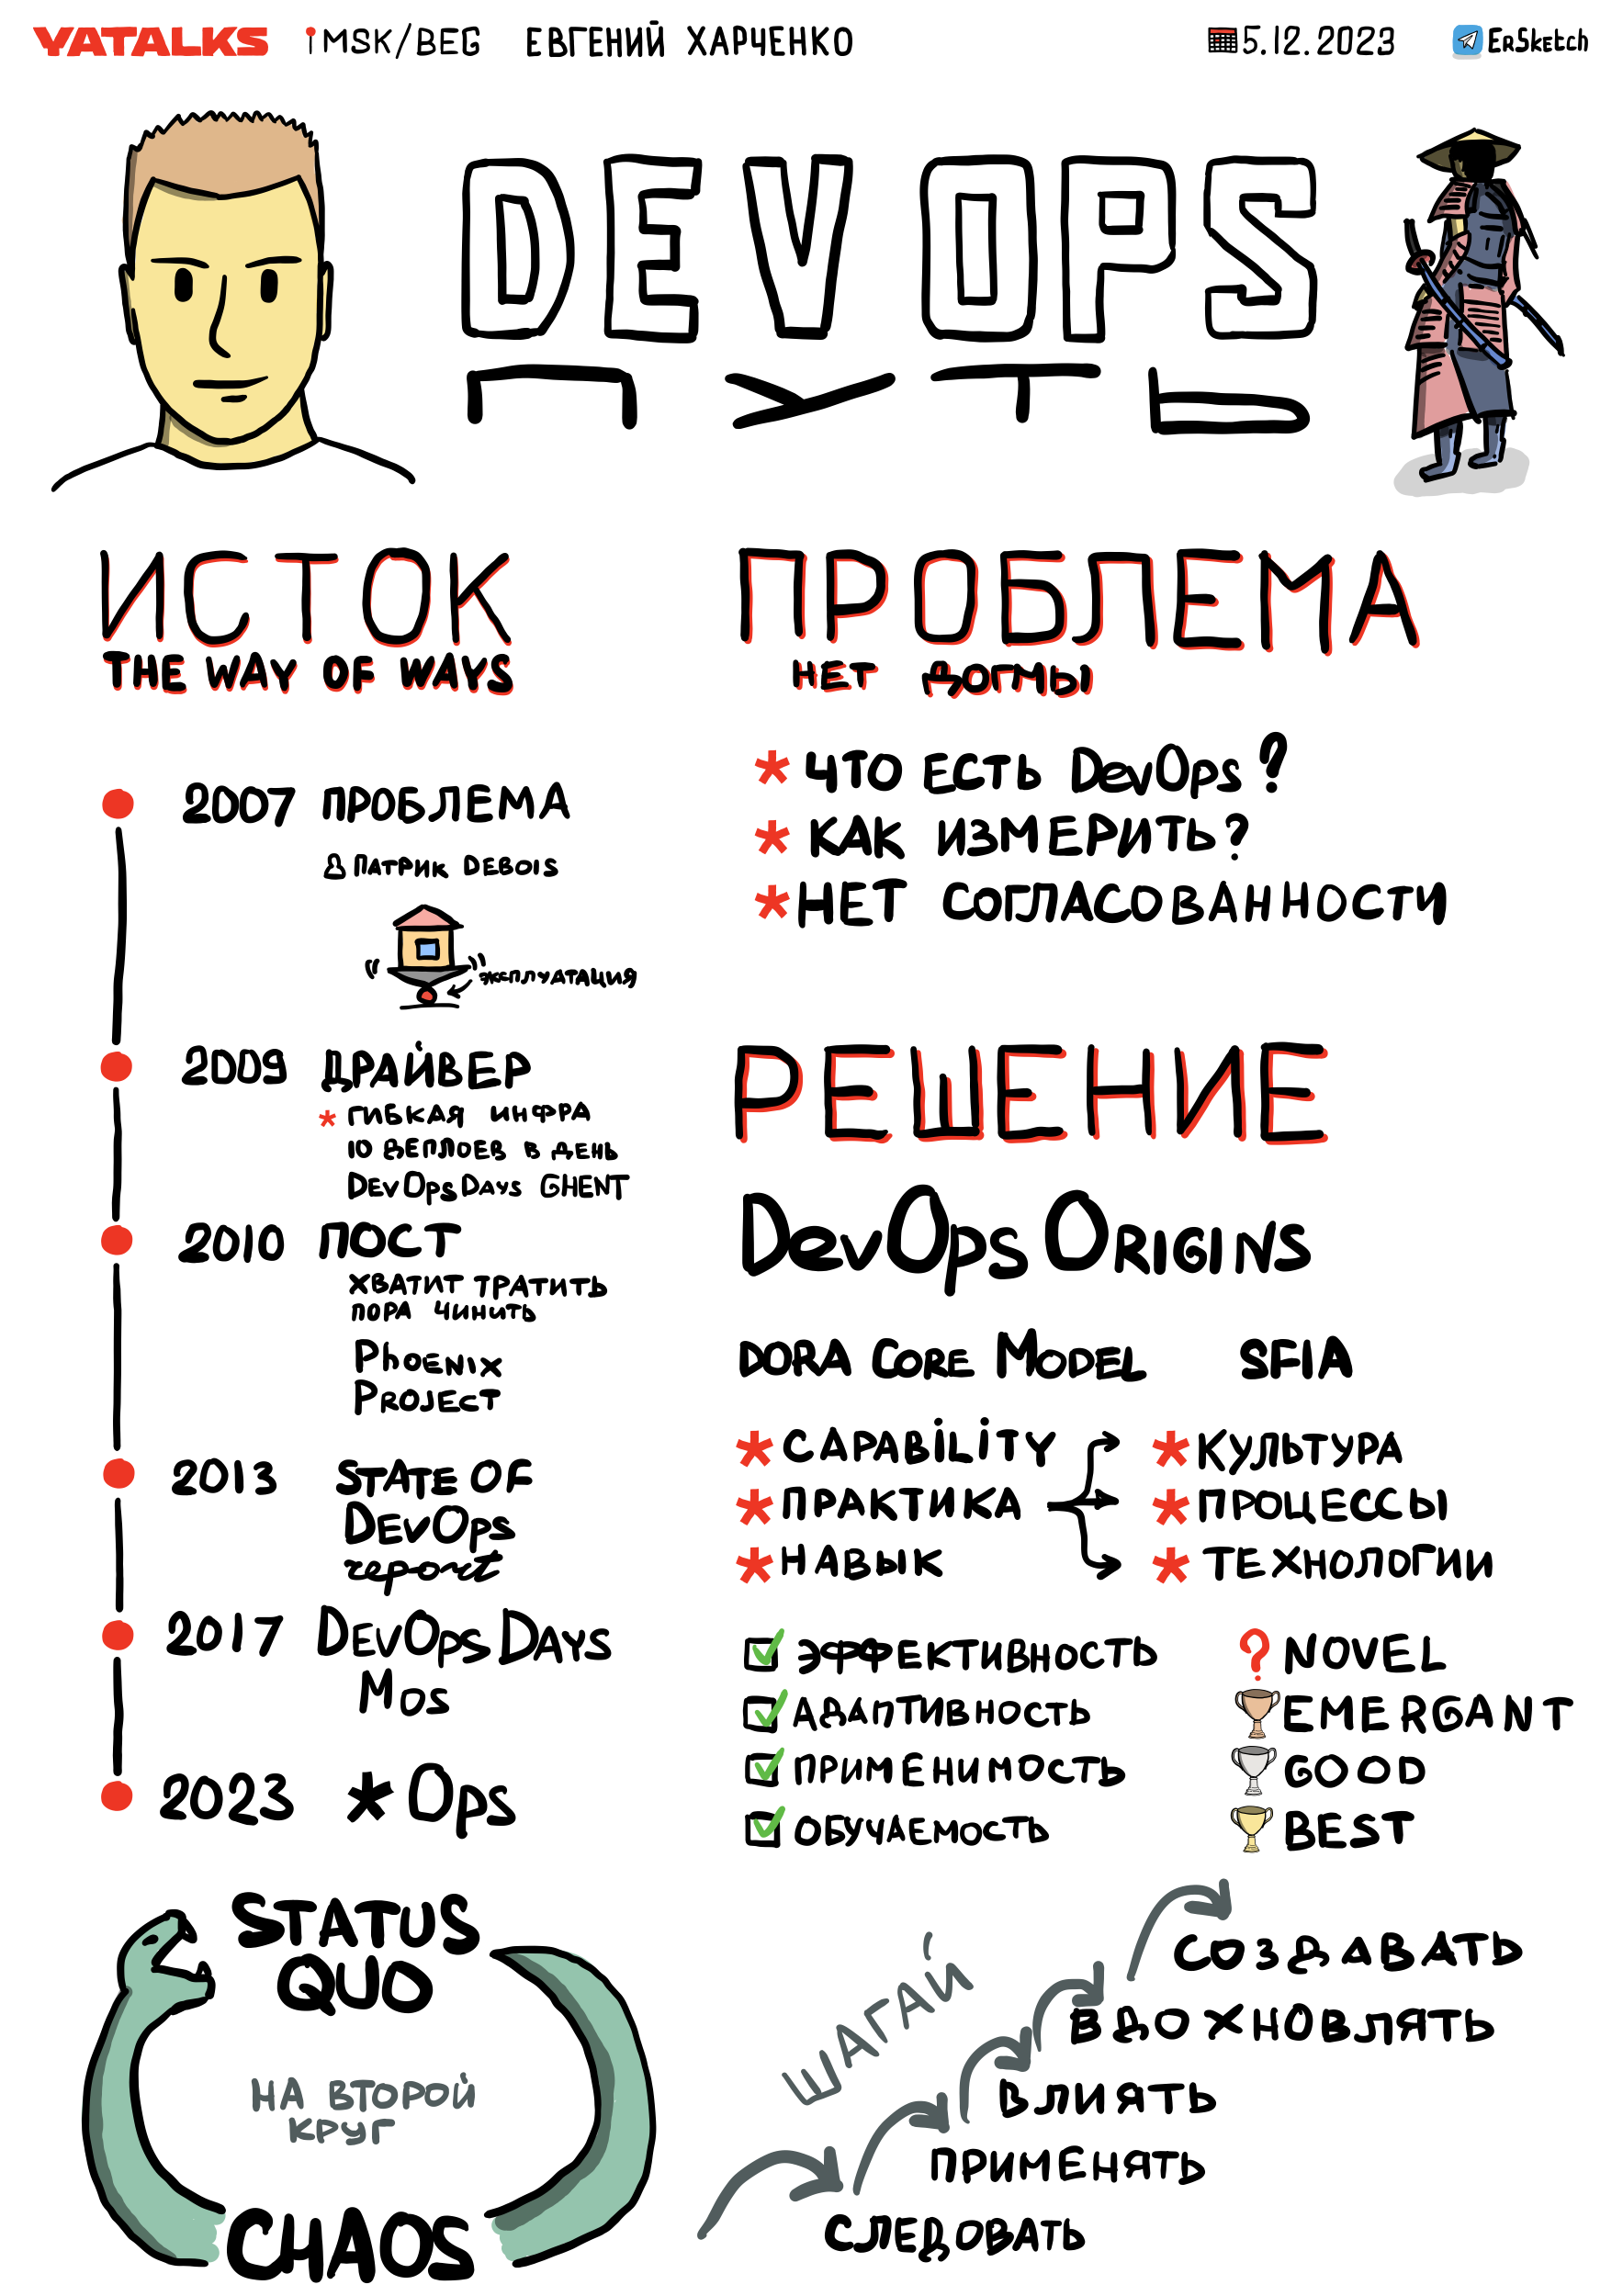 YATALKS MSK/BEG ЕВГЕНИЙ ХАРЧЕНКО 5.12.2023 ErSketch
DEVOPS
ПУТЬ
ИСТОК
THE WAY OF WAYS
2007 ПРОБЛЕМА
ПАТРИК DEBOIS
ЭКСПЛУАТАЦИЯ
2009 ДРАЙВЕР
* ГИБКАЯ ИНФРА
10 ДЕПЛОЕВ В ДЕНЬ
DevOpsDays GHENT
2010 ПОСТ
ХВАТИТ ТРАТИТЬ
ПОРА ЧИНИТЬ
PhOENIX
PROJECT
2013 STATE OF
DEVOps
report
2017 DEVOps DAYS
MOS
2023 * Ops
STATUS
QUO
НА ВТОРОЙ
КРУГ
CHAOS
ПРОБЛЕМА
НЕТ ДОГМЫ
* ЧТО ЕСТЬ DevOps?
* КАК ИЗМЕРИТЬ?
* НЕТ СОГЛАСОВАННОСТИ
РЕШЕНИЕ
DevOps ORIGINS
DORA CORE MODEL SFIA
* CAPABiLiTY
* ПРАКТИКА
* НАВЫК
* КУЛЬТУРА
* ПРОЦЕССЫ
* ТЕХНОЛОГИИ
ЭФФЕКТИВНОСТЬ
АДАПТИВНОСТЬ
ПРИМЕНИМОСТЬ
ОБУЧАЕМОСТЬ
? NOVEL
EMERGANT
GOOD
BEST
ШАГАЙ
СОЗДАВАТЬ
ВДОХНОВЛЯТЬ
ВЛИЯТЬ
ПРИМЕНЯТЬ
СЛЕДОВАТЬ